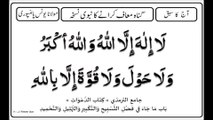 آج کا سبق
گناہ معاف کرانے کا نبوی نسخہ
مولانا یونس پالنپوری
لَا إِلٰهَ إِلَّا اللّٰهُ وَاللّٰهُ أَكْبَرُ
وَلَا حَوْلَ وَلَا قُوَّةَ إِلَّا بِاللّٰهِ
جامع الترمذي - كتاب الدعوات
باب ما جاء في فضل التسبيح والتكبير والتهليل والتحميد